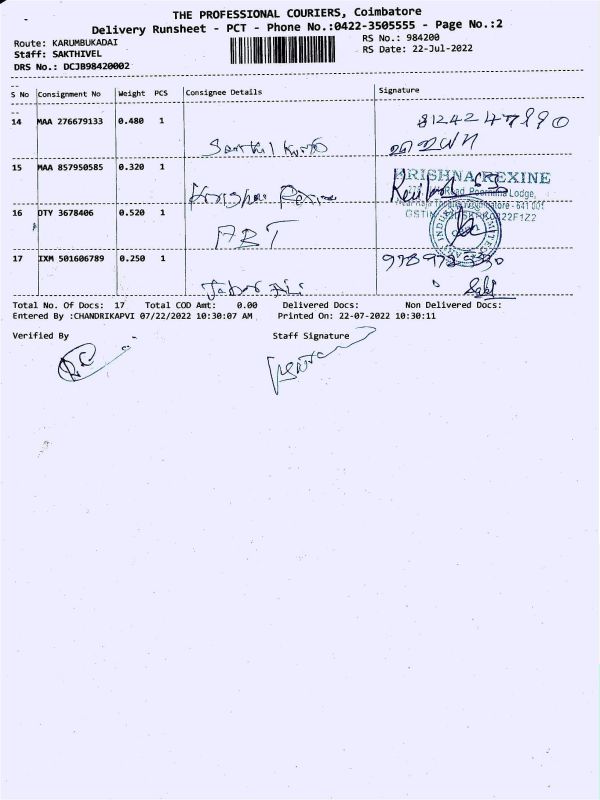 THE PROFESSIONAL COURIERS, Coimbatore
Delivery Runsheet - PCT - Phone No.:0422-3505555 - Page No.:2
Route: KARUMBUKADAI RS No.: 984200
Staff: SAKTHIVEL RS Date: 22-Jul-2022
DRS No.: DCJB98420002
S No Consignment No Weight PCS Consignee Details Signature
14 MAA 276679133 0.480 1
15 MAA 857950585 0.320 1
KRISHNA REXINE
Poornima Lodge,
641 001
16 DTY 3678406 0.520 1 ABT
17 IXM 501606789 0.250 1
Total No. Of Docs: 17 Total COD Amt: 0.00 Delivered Docs: Non Delivered Docs:
Entered By :CHANDRIKAPVI 07/22/2022 10:30:07 AM Printed On: 22-07-2022 10:30:11
Verified By Staff Signature